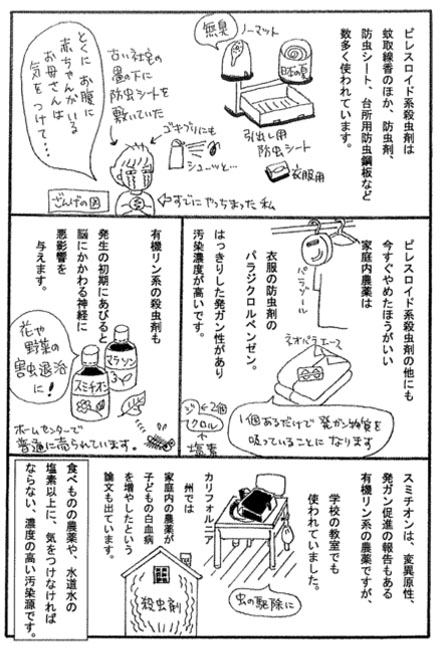 ピレスロイド系殺虫剤は
蚊取線香のほか、防虫剤
防虫シート、台所用防虫鋼板など
数多く使われています。
無臭
ノーマット
日本の夏
引出し用
防虫シート
衣服用
ゴキブリにも
シューッと…
古い社宅の
畳の下に
防虫シートを
敷いていた
とくに お腹に
赤ちゃんがいる
お母さんは
気をつけて…
ざんげの図
⇦すでにやっちまった私
ピレスロイド系殺虫剤の他にも
今すぐやめたほうがいい
家庭内農薬は
パラゾール
ネオパラエース
衣服の防虫剤の
パラジクロルベンゼン。
はっきりした発ガン性があり
汚染濃度が高いです。
ジ←2個
クロル
塩素
1個あるだけで 発ガン物質を
吸っていることに なります
有機リン系の殺虫剤も
発生の初期にあびると
脳にかかわる神経に
悪影響を
与えます。
マラソン
スミチオン
花や
野菜の
害虫退治
に!
ホームセンターで
普通に売られています。
スミチオンは、変異原性、
発ガン促進の報告もある
有機リン系の農薬ですが、
学校の教室でも
使われていました。
虫の駆除に
カリフォルニア
州では
家庭内の農薬が
子どもの白血病
を増やしたという
論文も出ています。
殺虫剤
食べものの農薬や、水道水の
塩素以上に、気をつけなければ
ならない、濃度の高い汚染源です。